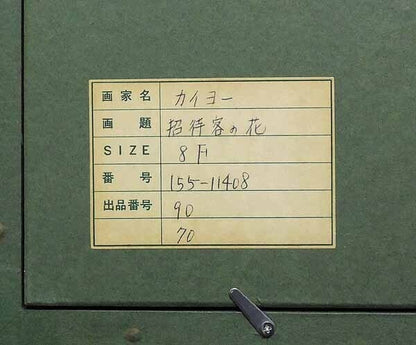 画家名 カイヨー
画題 招待客の花
SIZE 8F
番号 155-11408
出品番号 90
70